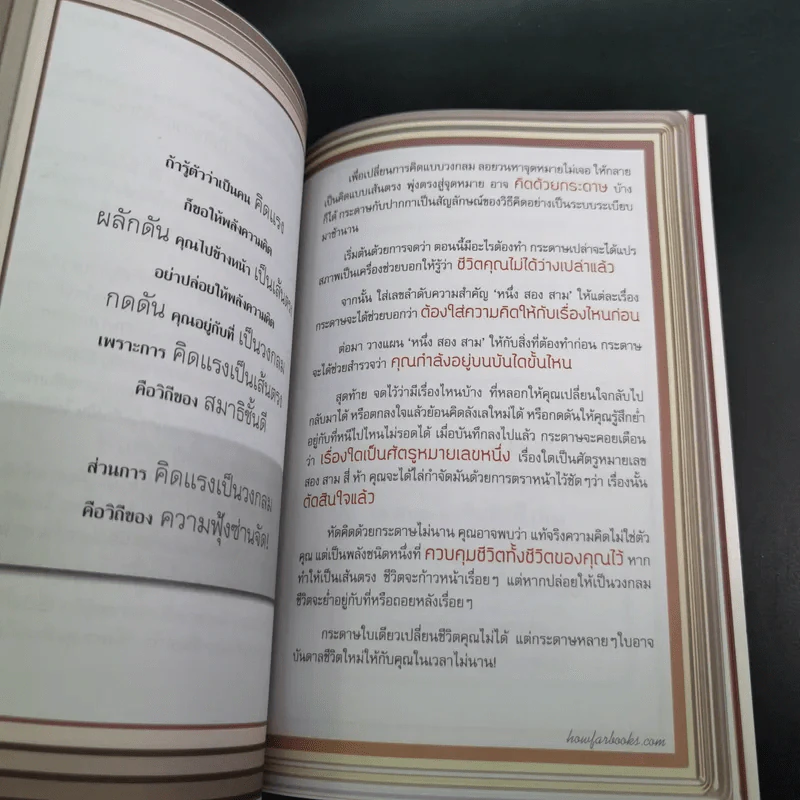 ถ้ารู้ตัวว่าเป็นคน คิดแรง
ก็ขอให้พลังความคิด
ผลักดัน คุณไปข้างหน้า เป็นเส้นตรง
อย่าปล่อยให้พลังความคิด
กดดัน คุณอยู่กับที่ เป็นวงกลม
เพราะการ คิดแรงเป็นเส้นตรง
คือวิถีของ สมาธิชั้นดี
ส่วนการ คิดแรงเป็นวงกลม
คือวิถีของ ความฟุ้งซ่านจัด!
เพื่อเปลี่ยนการคิดแบบวงกลม ลอยวนหาจุดหมายไม่เจอ ให้กลาย
เป็นคิดแบบเส้นตรง พุ่งตรงสู่จุดหมาย อาจ คิดด้วยกระดาษ บ้าง
ก็ได้ กระดาษกับปากกาเป็นสัญลักษณ์ของวิธีคิดอย่างเป็นระบบระเบียบ
มาช้านาน
เริ่มต้นด้วยการจดว่า ตอนนี้มีอะไรต้องทำ กระดาษเปล่าจะได้แปร
สภาพเป็นเครื่องช่วยบอกให้รู้ว่า ชีวิตคุณไม่ได้ว่างเปล่าแล้ว
จากนั้น ใส่เลขลำดับความสำคัญ ‘หนึ่ง สอง สาม’ ให้แต่ละเรื่อง
กระดาษจะได้ช่วยบอกว่า ต้องใส่ความคิดให้กับเรื่องไหนก่อน
ต่อมา วางแผน ‘หนึ่ง สอง สาม’ ให้กับสิ่งที่ต้องทำก่อน กระดาษ
จะได้ช่วยสำรวจว่า คุณกำลังอยู่บนบันไดขั้นไหน
สุดท้าย จดไว้ว่ามีเรื่องไหนบ้าง ที่หลอกให้คุณเปลี่ยนใจกลับไป
กลับมาได้ หรือตกลงใจแล้วย้อนคิดลังเลใหม่ได้ หรือกดดันให้คุณรู้สึกย่ำ
อยู่กับที่หนีไปไหนไม่รอดได้ เมื่อบันทึกลงไปแล้ว กระดาษจะคอยเตือน
ว่า เรื่องใดเป็นศัตรูหมายเลขหนึ่ง เรื่องใดเป็นศัตรูหมายเลข
สอง สาม สี่ ห้า คุณจะได้ไล่กำจัดมันด้วยการตราหน้าไว้ชัดๆว่า เรื่องนั้น
ตัดสินใจแล้ว
หัดคิดด้วยกระดาษไม่นาน คุณอาจพบว่า แท้จริงความคิดไม่ใช่ตัว
คุณ แต่เป็นพลังชนิดหนึ่งที่ ควบคุมชีวิตทั้งชีวิตของคุณไว้ หาก
ทำให้เป็นเส้นตรง ชีวิตจะก้าวหน้าเรื่อยๆ แต่หากปล่อยให้เป็นวงกลม
ชีวิตจะย่ำอยู่กับที่หรือถอยหลังเรื่อยๆ
กระดาษใบเดียวเปลี่ยนชีวิตคุณไม่ได้ แต่กระดาษหลายๆใบอาจ
บันดาลชีวิตใหม่ให้กับคุณในเวลาไม่นาน!
howfarbooks.com